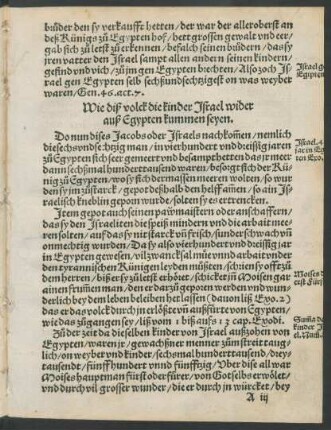 brüder den sy verkaufft hetten / der war der alleroberst an
deß Künigs zů Egypten hof / hett grossen gewalt vnd eer /
gab sich zů letst zů erkennen / befalch seinen brüdern / das sy
jren vatter den Israel sampt allen andern seinen kindern /
gesind vnd vich / zů jm gen Egypten brechten / Also zoch Is-
rael gen Egypten selb sechßundsechzigest on was weyber
waren / Gen. 46. act. 7.
Wie diß volck die kinder Israel wider
auß Egypten kummen seyen.
Do nun dises Jacobs oder Israels nachkom̃en / nemlich
die sechsundsechzig man / in vierhundert vnd dreissig jaren
zů Egypten sich seer gemeert vnd besampt hetten das jr meer
dann sechßmal hunderttausend waren / besorgt sich der Kü-
nig zů Egypten / wo sy sich dermassen meerten wolten / so wur
den sy jm zů starck / gepot deßhalb den helffam̃en / so ain Is-
raelisch kneblin geporn wurde / solten sy es ertrencken.
Item gepot auch seinen pawmaistern oder anschaffern /
das sy den Israeliten die speiß mindern vnd die arbait mee-
ren solten / auf das sy nit starck vñ frisch / sunder schwach vñ
onmechtig wurden / Da sy also vierhundert vnd dreissig jar
in Egypten gewesen / vil zwancksal müe vnnd arbait vnder
den tyrannischen Künigen leyden můsten / schrien sy offt zů
dem herren / biß er sy zů letst erhöret / schicket jn Moisen gar
ainen frum̃en man / den er darzů gezogen werden vnd wun-
derlich bey dem leben beleiben het lassen (dauon liß Exo. 2)
das er das volck durch jn erlößet vñ außfürte von Egypten /
wie das zůgangen sey / liß vom 1 biß auffs 13 cap. Exodi.
Zů der zeit da dieselben kinder von Israel außzohen von
Egypten / waren jr / gewachßner menner zům streit taug-
lich / on weyber vnd kinder / sechsmal hunderttausend / drey-
tausendt / fünffhundert vnnd fünffzig / Vber dise all war
Moises hauptman fürst oder fürer / von Got selbs erwölet /
vnd durch vil grosser wunder / die er durch jn würcket / bey
A iij
Israel g
Egipten
Israel. 4
jar in Eg
ten Exo.
Moises d
erst Fürst